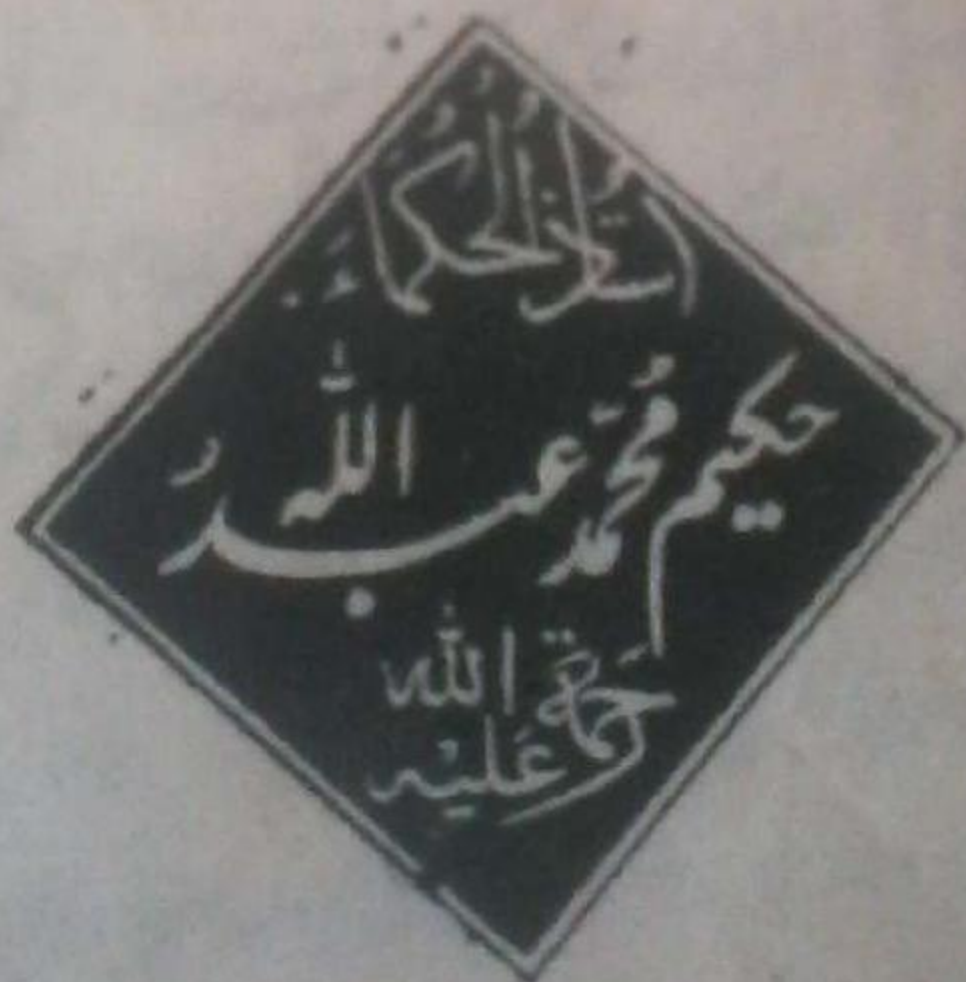 اُستاذُ الحُکماء
حکیم مُحمّد عبدُ اللہ
رحمۃ اللہ
علیہ